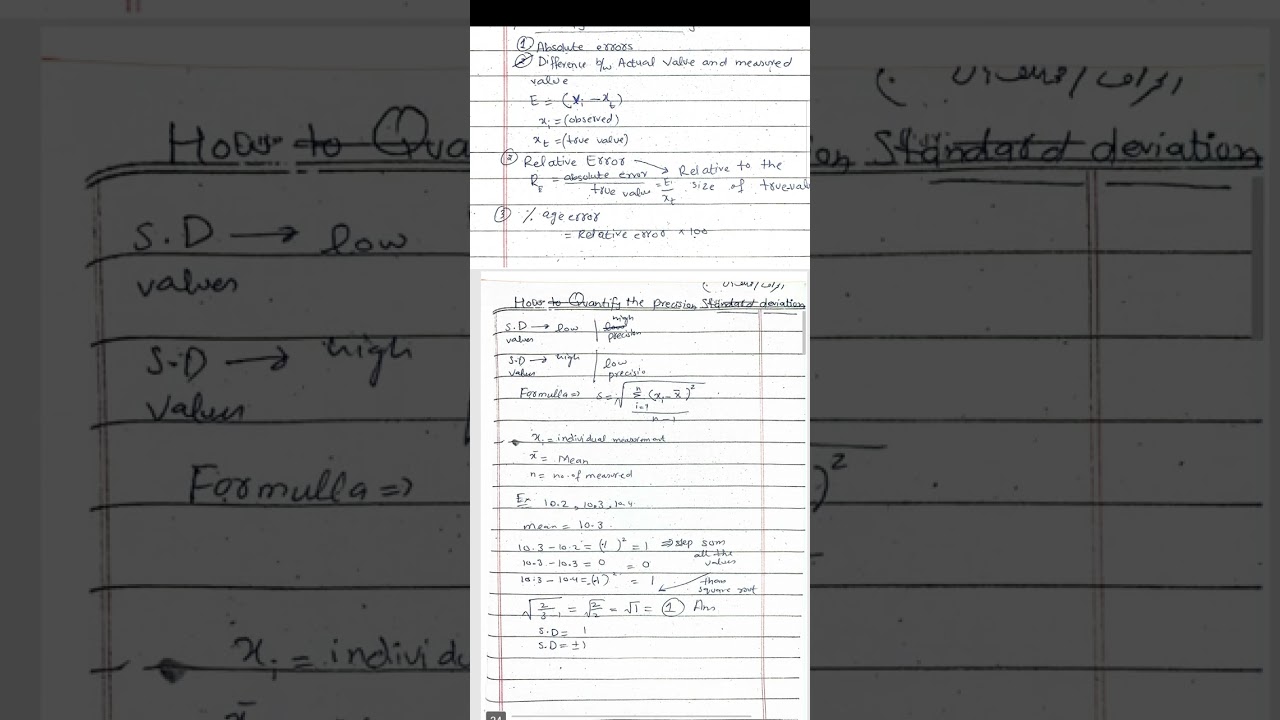 ① Absolute errors
Difference b/w Actual Value and measured
value
E = (xᵢ - xₜ)
xᵢ = (observed)
xₜ = (true value)
② Relative Error → Relative to the
R_E = absolute error / true value = Eᵢ / xₜ size of trueval
③ % age error
= Relative error × 100
How to Quantify the precision Standard deviation
S.D → low | high
values | precision
S.D → high | low
values | precisio
Formulla => S = √(Σ(xᵢ - x̄)² / n-1) n i=1
xᵢ = individual measurement
x̄ = Mean
n = no. of measured
Ex 10.2, 10.3, 10.4
mean = 10.3
10.3 - 10.2 = (.1)² = 1 => step som
all the
values
10.3 - 10.3 = 0 = 0
10.3 - 10.4 = (-.1)² = 1
then
square root
√(2/3-1) = √(2/2) = √1 = ① Ans
S.D = 1
S.D = ±1
24
How to Qua
n Standard deviation
S.D → low
values
S.D → high
values
Formulla =>
)²
xᵢ = individ
x̄